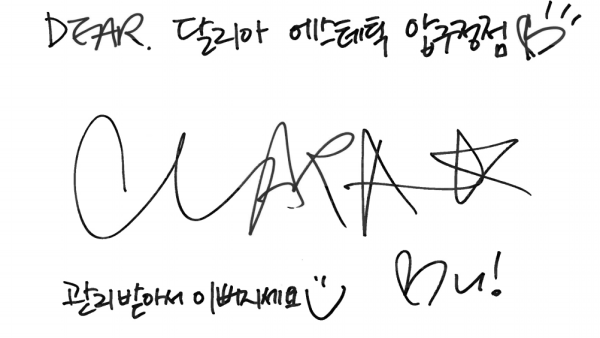 DEAR. 달리아 에스테틱 압구정점
CLARA
관리받아서 이뻐지세요